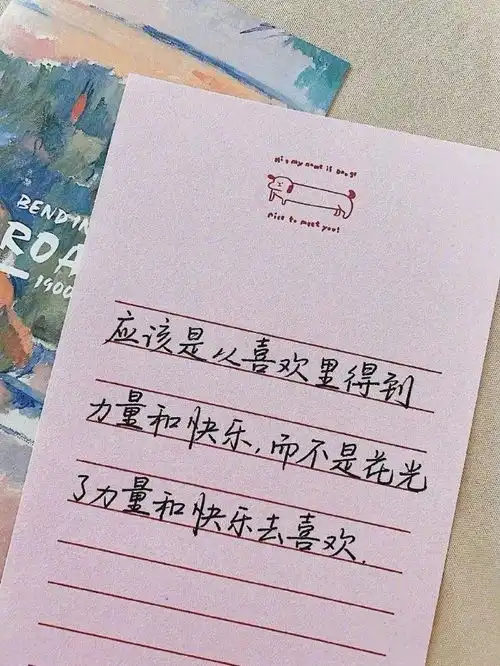 Hi, my name is Bange
nice to meet you!
BEND IN
ROA
1900
应该是以喜欢里得到
力量和快乐,而不是花光
了力量和快乐去喜欢.